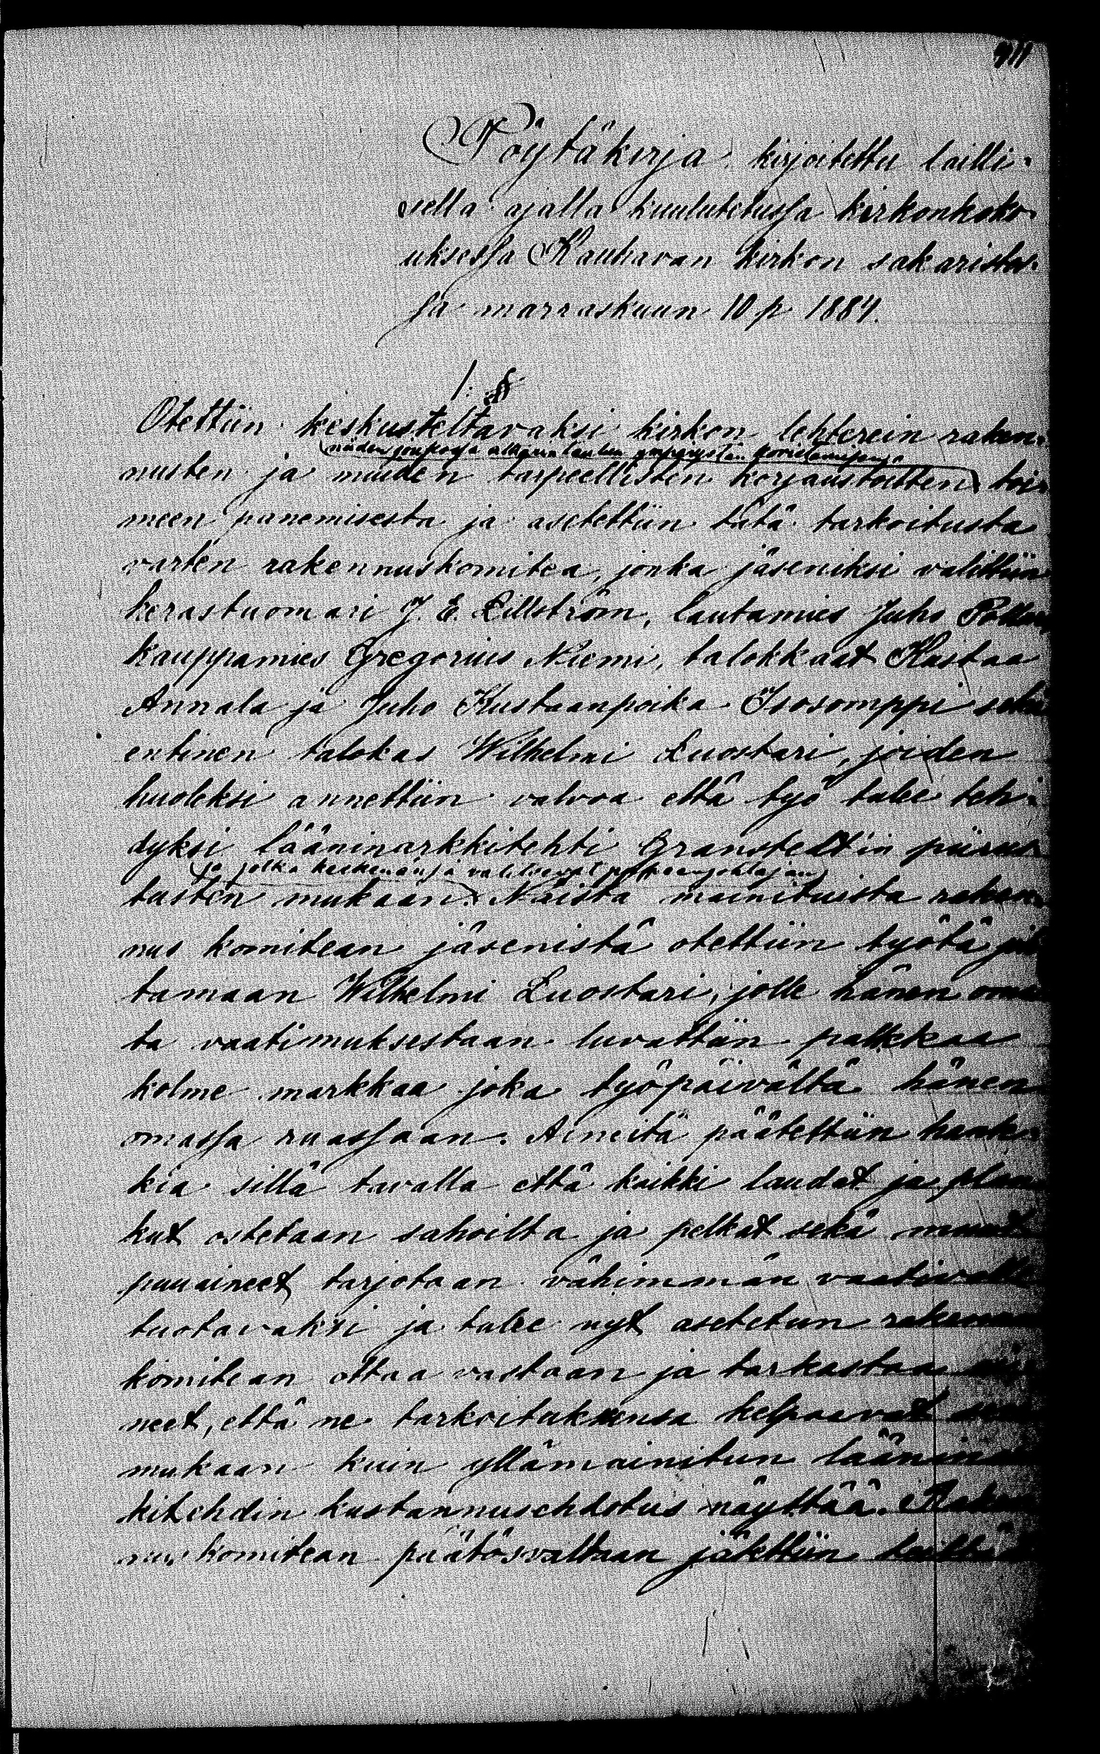 Pöytäkirja kirjoitettu lailli-
sella ajalla kuulutetussa kirkonkoko-
uksessa Kauhavan kirkon sakaristos-
sa marraskuun 10 p 1884.
1. §
Otettiin keskusteltavaksi kirkon lehterein raken-
nusten ja muiden tarpeellisten korjaustoitten toi-
meen panemisesta ja asetettiin tätä tarkoitusta
varten rakennuskomitea, jonka jäseniksi valittiin
herastuomari J. E. Lillström, lautamies Juho
kauppamies Gregorius Niemi, talokkaat Kustaa
Annala ja Juho Kustaanpoika Isosomppi sekä
entinen talokas Wilhelmi Luostari, joiden
huoleksi annettiin valvoa että työ tulee teh-
dyksi lääninarkkitehti Granstedtin piirus-
ja jotka keskenänsä valitsevat
tusten mukaan. Näistä mainituista raken-
nus komitean jäsenistä otettiin työtä
tamaan Wilhelmi Luostari, jolle hänen omas-
ta vaatimuksestaan luvattiin palkkaa
kolme markkaa joka työpäivältä hänen
omassa ruassaan. Aineita päätettiin hank-
kia sillä tavalla että kaikki laudat ja plan
kut ostetaan sahoilta ja pelkat sekä muut
puuaineet tarjotaan vähimmän vaativalle
tuotavaksi ja tulee nyt asetetun raken
komitean ottaa vastaan ja tarkastaa
neet, että ne tarkoitukseensa kelpaavat sen
mukaan kuin yllämainitun läänin
kitehdin kustannusehdotus näyttää. Raken
nus komitean päätösvaltaan jätettiin